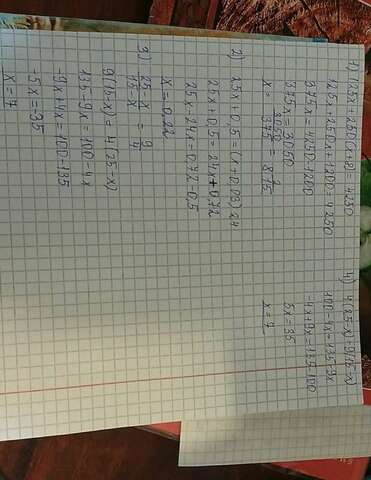 1) 125x+250(x+8)=4250
125x+250x+1200=4250
375x=4250-1200
375x=3050
x=3050/375=8 2/15
2) 25x+0,5=(x+0,03)24
25x+0,5=24x+0,72
25x-24x=0,72-0,5
x=0,22
3) 25-x/15-x=9/4
9(15-x)=4(25-x)
135-9x=100-4x
-9x+4x=100-135
-5x=-35
x=7
4) 4(25-x)=9(15-x)
100-4x=135-9x
-4x+9x=135-100
5x=35
x=7